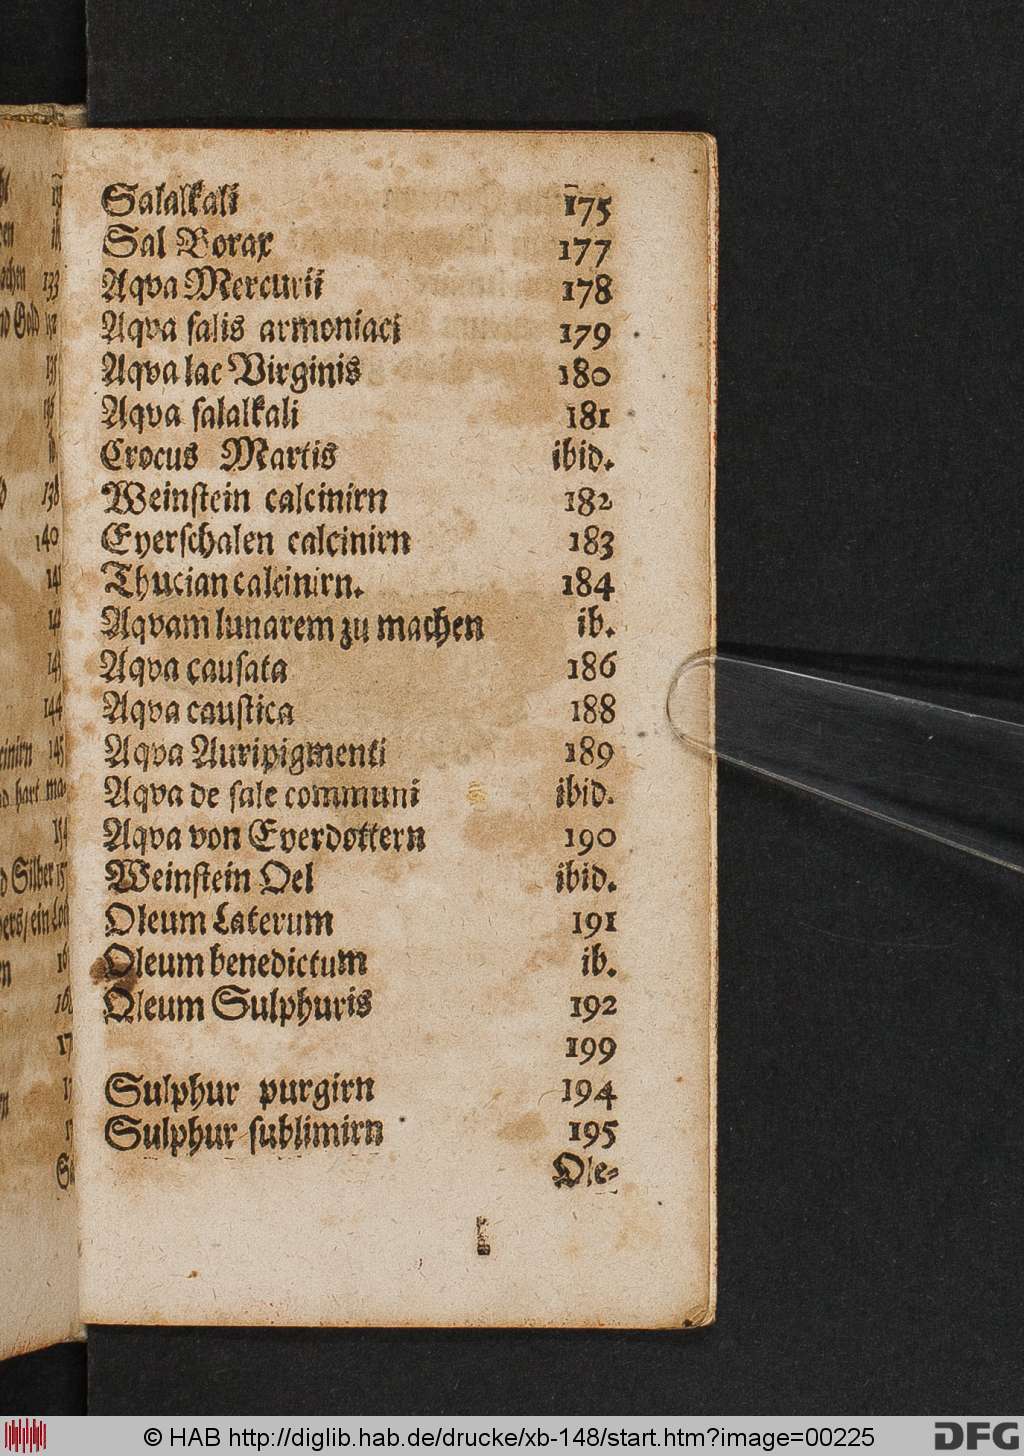 Salalkali 175
Sal Borax 177
Aqva Mercurii 178
Aqva salis armoniaci 179
Aqva lac Virginis 180
Aqva salalkali 181
Crocus Martis ibid.
Weinstein calcinirn 182
Eyerschalen calcinirn 183
Thucian calcinirn. 184
Aqvam lunarem zu machen ib.
Aqva causata 186
Aqva caustica 188
Aqva Auripigmenti 189
Aqva de sale communi ibid.
Aqva von Eyerdottern 190
Weinstein Oel ibid.
Oleum Laterum 191
Oleum benedictum ib.
Oleum Sulphuris 192
199
Sulphur purgirn 194
Sulphur sublimirn 195
Ole-
© HAB http://diglib.hab.de/drucke/xb-148/start.htm?image=00225
DFG